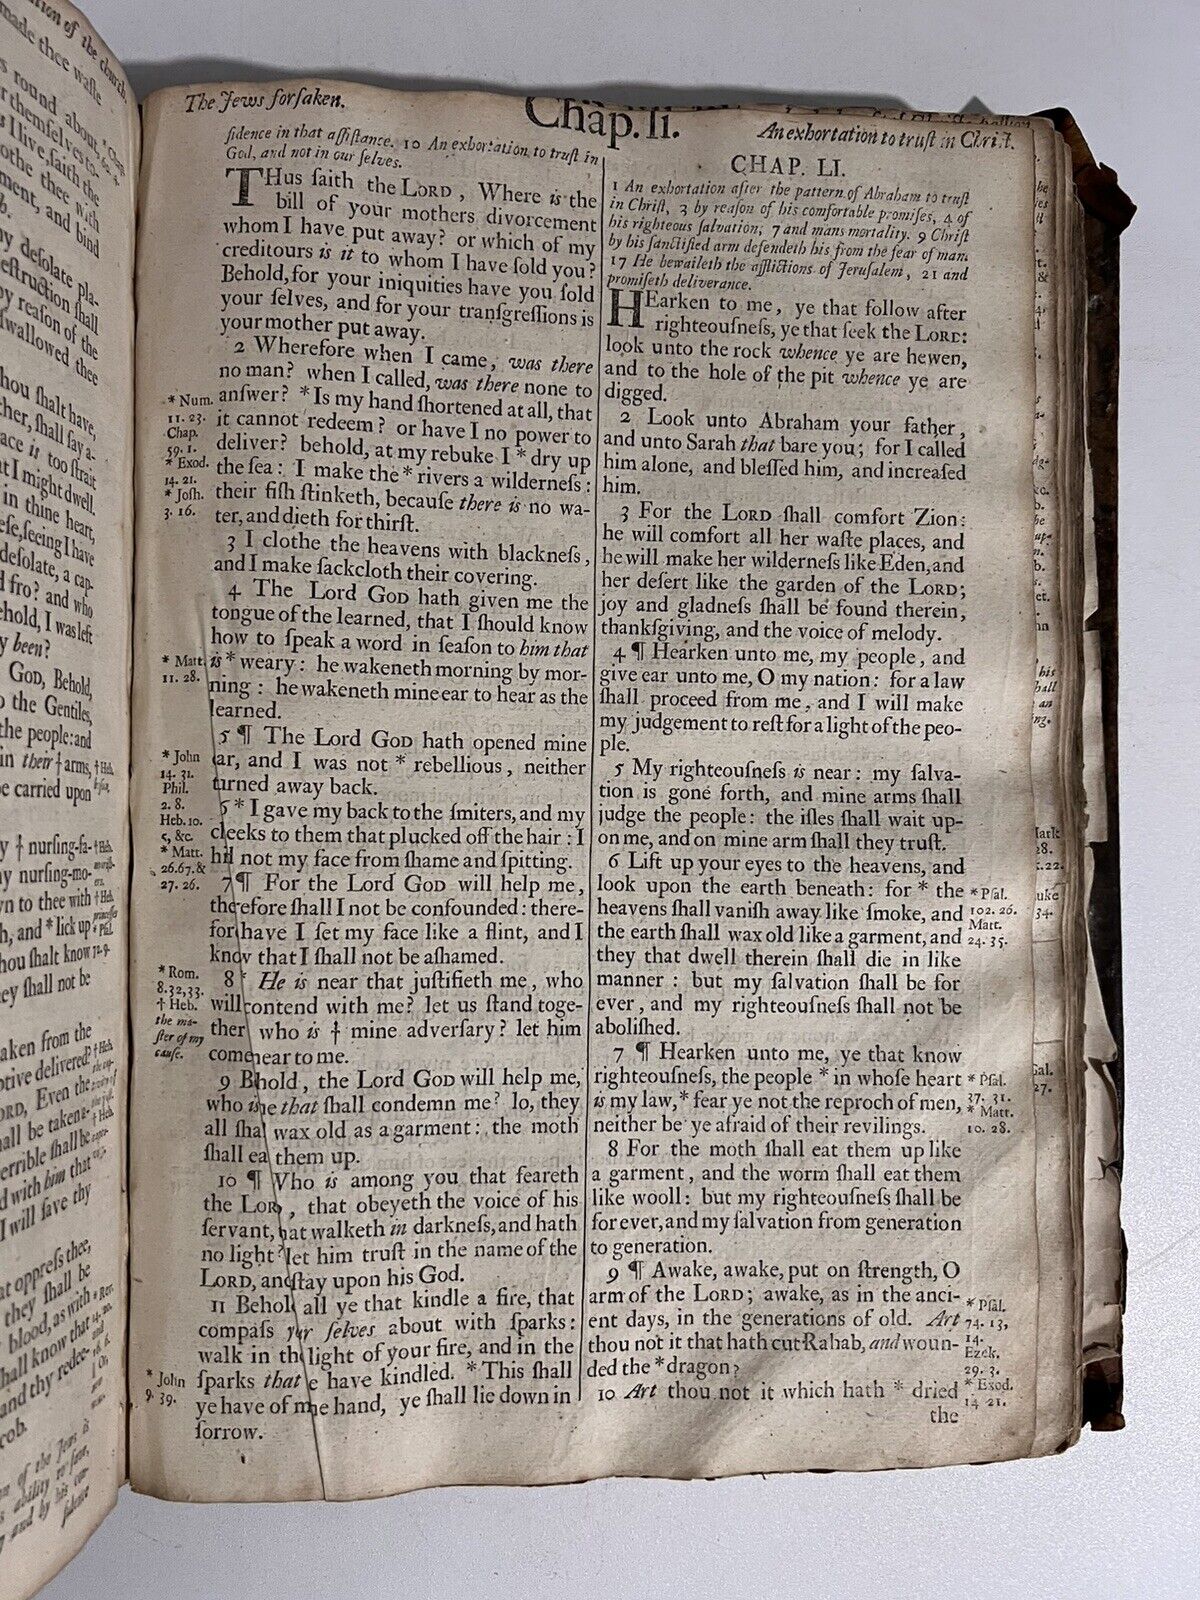 ation of the church.
made thee waste
s round about,
r themselves to-
s I live, saith the
othe thee with
ment, and bind
b.
y desolate pla-
estruction shall
by reason of the
swallowed thee
hou shalt have,
ther, shall say a-
ace is too strait
t I might dwell.
in thine heart,
ese, seeing I have
desolate, a cap-
fro? and who
ehold, I was left
y been?
GOD, Behold,
o the Gentiles,
the people: and
in their † arms,
be carried upon
y † nursing-fa-
ny nursing-mo-
wn to thee with
h, and * lick up
hou shalt know
hey shall not be
aken from the
ptive delivered?
ORD, Even the
hall be taken
terrible shall be
d with him that
I will save thy
at oppress thee,
they shall be
blood, as with
shall know that
and thy redee-
cob.
on of the Jews is
ability to save,
and by his con-
fidence
The Jews forſaken.
Chap. li.
An exhortation to truſt in Chriſt.
ſidence in that aſſiſtance. 10 An exhortation to truſt in
God, and not in our ſelves.
THus ſaith the LORD, Where is the
bill of your mothers divorcement
whom I have put away? or which of my
creditours is it to whom I have ſold you?
Behold, for your iniquities have you ſold
your ſelves, and for your tranſgreſſions is
your mother put away.
2 Wherefore when I came, was there
no man? when I called, was there none to
anſwer? * Is my hand ſhortened at all, that
it cannot redeem? or have I no power to
deliver? behold, at my rebuke I * dry up
the ſea: I make the * rivers a wilderneſs:
their fiſh ſtinketh, becauſe there is no wa-
ter, and dieth for thirſt.
3 I clothe the heavens with blackneſs,
and I make ſackcloth their covering.
4 The Lord GOD hath given me the
tongue of the learned, that I ſhould know
how to ſpeak a word in ſeaſon to him that
is * weary: he wakeneth morning by mor-
ning: he wakeneth mine ear to hear as the
learned.
5 ¶ The Lord GOD hath opened mine
ear, and I was not * rebellious, neither
turned away back.
6 * I gave my back to the ſmiters, and my
cheeks to them that plucked off the hair: I
hid not my face from ſhame and ſpitting.
7 ¶ For the Lord GOD will help me,
therefore ſhall I not be confounded: there-
fore have I ſet my face like a flint, and I
know that I ſhall not be aſhamed.
8 * He is near that juſtifieth me, who
will contend with me? let us ſtand toge-
ther who is † mine adverſary? let him
come near to me.
9 Behold, the Lord GOD will help me,
who is he that ſhall condemn me? lo, they
all ſhall wax old as a garment: the moth
ſhall eat them up.
10 ¶ Who is among you that feareth
the LORD, that obeyeth the voice of his
ſervant, that walketh in darkneſs, and hath
no light? let him truſt in the name of the
LORD, and ſtay upon his God.
11 Behold all ye that kindle a fire, that
compaſs your ſelves about with ſparks:
walk in the light of your fire, and in the
ſparks that ye have kindled. * This ſhall
ye have of mine hand, ye ſhall lie down in
ſorrow.
* Num.
11. 23.
Chap.
59. 1.
* Exod.
14. 21.
* Joſh.
3. 16.
* Matt.
11. 28.
* John
14. 31.
Phil.
2. 8.
Heb. 10.
5, &c.
* Matt.
26. 67. &
27. 26.
* Rom.
8. 32, 33.
† Heb.
the ma-
ſter of my
cauſe.
* John
9. 39.
CHAP. LI.
1 An exhortation after the pattern of Abraham to truſt
in Chriſt, 3 by reaſon of his comfortable promiſes, 4 of
his righteous ſalvation; 7 and mans mortality. 9 Chriſt
by his ſanctified arm defendeth his from the fear of man.
17 He bewaileth the afflictions of Jeruſalem, 21 and
promiſeth deliverance.
HEarken to me, ye that follow after
righteouſneſs, ye that ſeek the LORD:
look unto the rock whence ye are hewen,
and to the hole of the pit whence ye are
digged.
2 Look unto Abraham your father,
and unto Sarah that bare you; for I called
him alone, and bleſſed him, and increaſed
him.
3 For the LORD ſhall comfort Zion:
he will comfort all her waſte places, and
he will make her wilderneſs like Eden, and
her deſert like the garden of the LORD;
joy and gladneſs ſhall be found therein,
thankſgiving, and the voice of melody.
4 ¶ Hearken unto me, my people, and
give ear unto me, O my nation: for a law
ſhall proceed from me, and I will make
my judgement to reſt for a light of the peo-
ple.
5 My righteouſneſs is near: my ſalva-
tion is gone forth, and mine arms ſhall
judge the people: the iſles ſhall wait up-
on me, and on mine arm ſhall they truſt.
6 Lift up your eyes to the heavens, and
look upon the earth beneath: for * the
heavens ſhall vaniſh away like ſmoke, and
the earth ſhall wax old like a garment, and
they that dwell therein ſhall die in like
manner: but my ſalvation ſhall be for
ever, and my righteouſneſs ſhall not be
aboliſhed.
7 ¶ Hearken unto me, ye that know
righteouſneſs, the people * in whoſe heart
is my law, * fear ye not the reproch of men,
neither be ye afraid of their revilings.
8 For the moth ſhall eat them up like
a garment, and the worm ſhall eat them
like wooll: but my righteouſneſs ſhall be
for ever, and my ſalvation from generation
to generation.
9 ¶ Awake, awake, put on ſtrength, O
arm of the LORD; awake, as in the anci-
ent days, in the generations of old. Art
thou not it that hath cut Rahab, and woun-
ded the * dragon?
10 Art thou not it which hath * dried
the
* Pſal.
102. 26.
Matt.
24. 35.
* Pſal.
37. 31.
* Matt.
10. 28.
* Pſal.
74. 13,
14.
Ezek.
29. 3.
* Exod.
14 21.